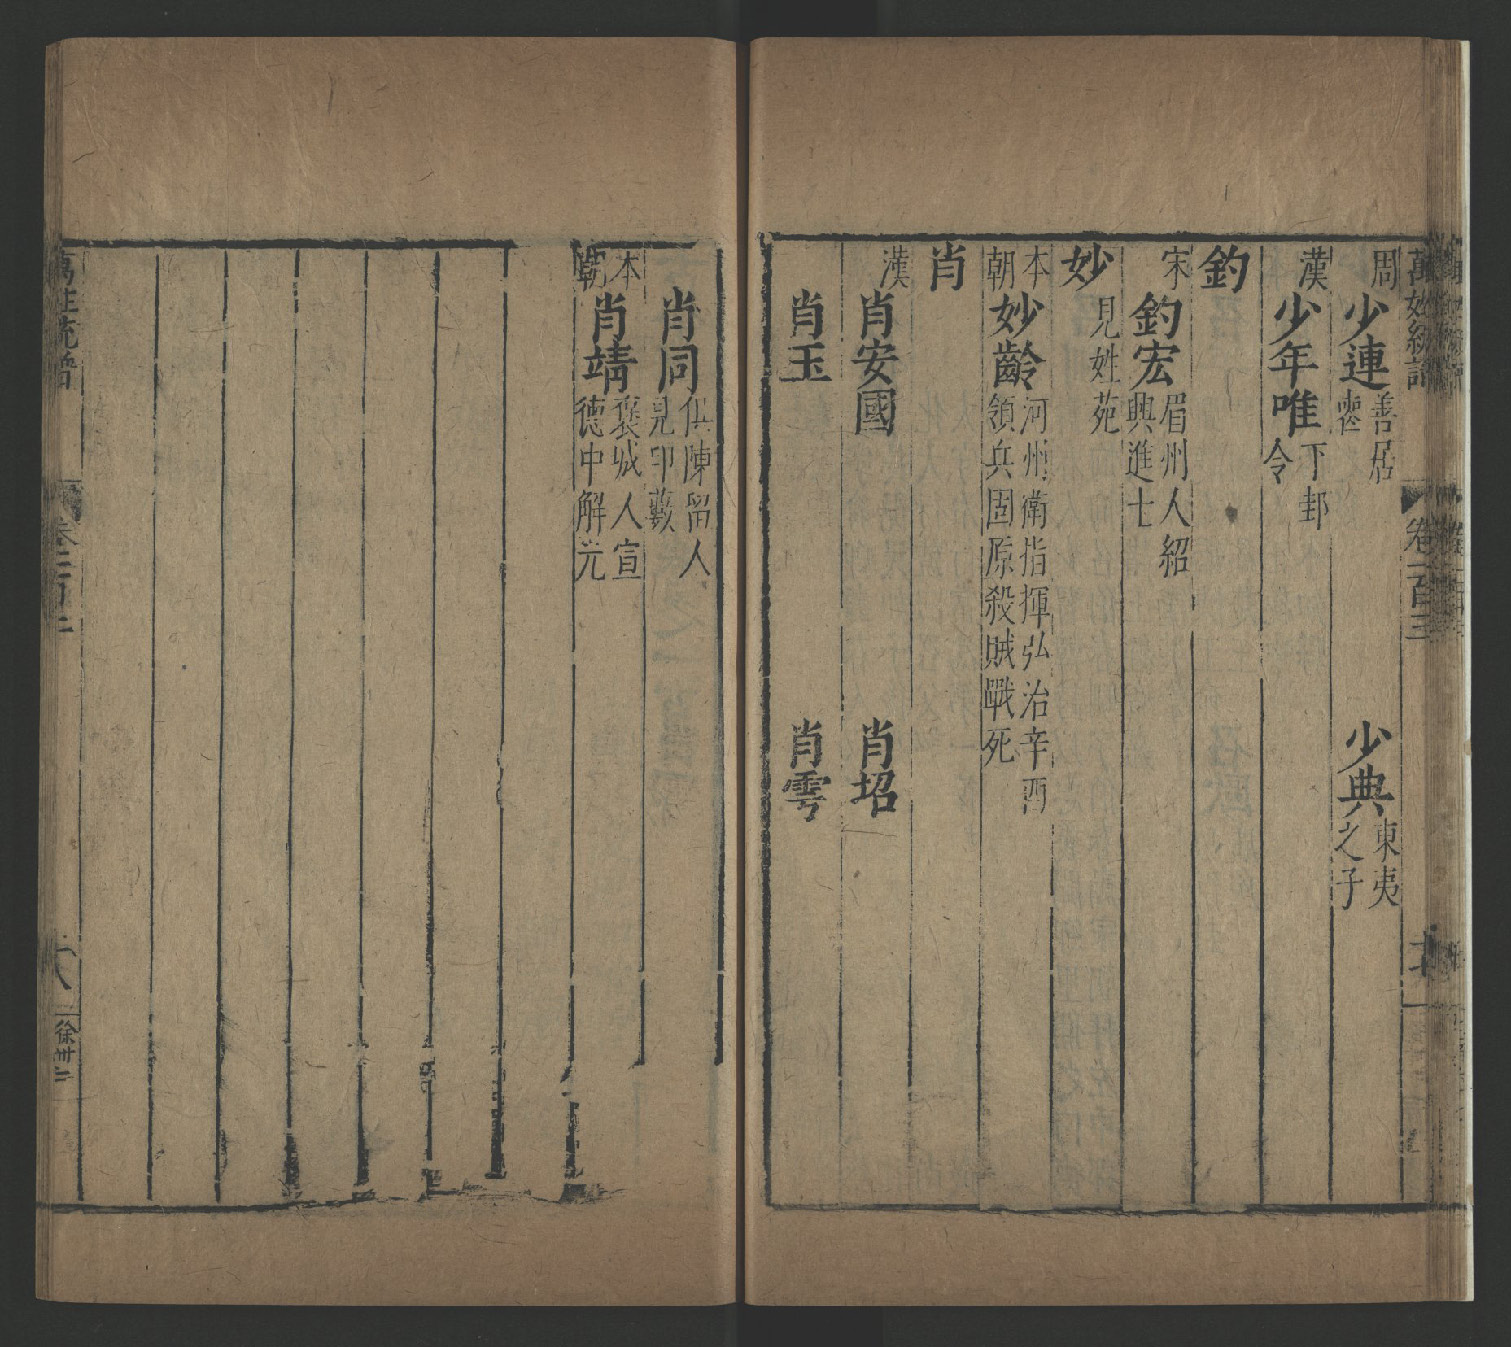 周
少連善居喪
少典東夷之子
漢
少年唯下邽令
釣
宋
釣宏眉州人紹興進士
妙
見姓苑
本朝
妙齡河州衛指揮弘治辛酉領兵固原殺賊戰死
肖
漢
肖安國
肖玿
肖玉
肖雲
肖同
陳留人見印藪
本朝
肖靖褒城人宣德中解元
卷一百三
徐